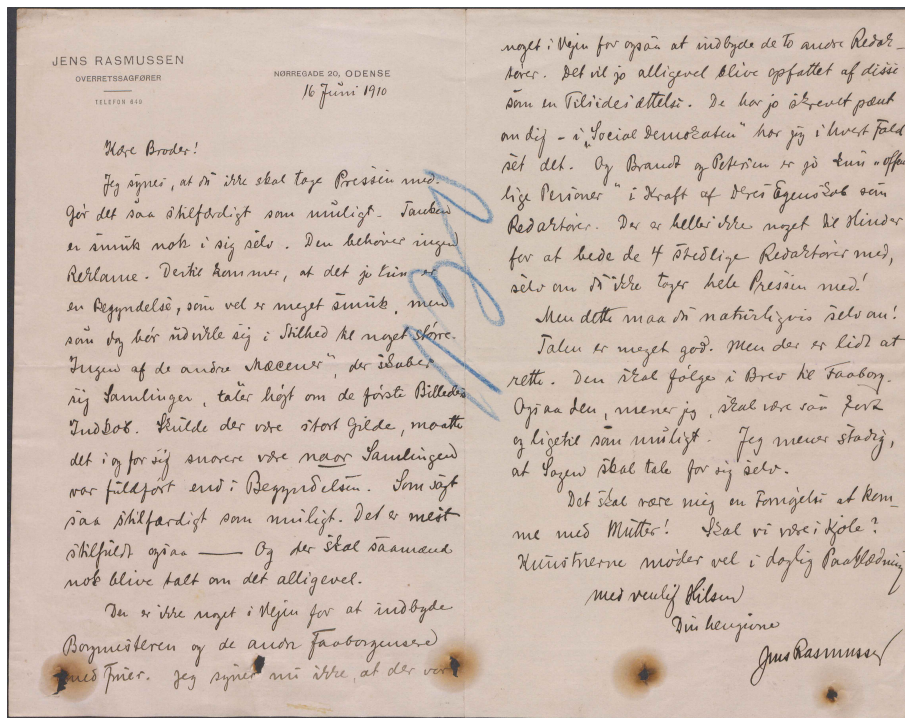 JENS RASMUSSEN
OVERRETSSAGFØRER
TELEFON 640
NØRREGADE 20, ODENSE
16 Juni 1910
Kære Broder!
Jeg synes, at du ikke skal tage Pressen med.
Gör det saa stilfærdigt som muligt. Tanken
er smuk nok i sig selv. Den behøver ingen
Reklame. Dertil kommer, at det jo kun er
en Begyndelse, som vel er meget smuk, men
som dog bör udvikle sig i Stilhed til noget större.
Ingen af de andre "Mæcener", der skaber
sig Samlinger, taler högt om de förste Billeders
Indkøb. Skulde der være stort Gilde, maatte
det i og for sig snarere være naar Samlingen
var fuldfört end i Begyndelsen. Som sagt
saa stilfærdigt som muligt. Det er mest
stilfuldt ogsaa — Og der skal saamænd
nok blive talt om det alligevel.
Der er ikke noget i Vejen for at indbyde
Borgmesteren og de andre Faaborgensere
med Fruer. Jeg synes nu ikke, at der var
noget i Vejen for ogsaa at indbyde de to andre Redak-
tører. Det vil jo alligevel blive opfattet af disse
som en Tilsidesættelse. De har jo skrevet pænt
om dig - i "Social Demokraten" har jeg i hvert Fald
set det. Og Brandt og Petersen er jo kun "offent
lige Personer" i Kraft af deres Egenskab som
Redaktører. Der er heller ikke noget til Hinder
for at bede de 4 stedlige Redaktører med,
selv om du ikke tager hele Pressen med!
Men dette maa du naturligvis selv om!
Talen er meget god. Men der er lidt at
rette. Den skal fölge i Brev til Faaborg.
Ogsaa den, mener jeg, skal være saa kort
og ligetil som muligt. Jeg mener stadig,
at Sagen skal tale for sig selv.
Det skal være mig en Fornöjelse at kom-
me med Mutter! Skal vi være i Kjole?
Kunstnerne møder vel i daglig Paaklædning
med venlig Hilsen
Din hengivne
Jens Rasmussen